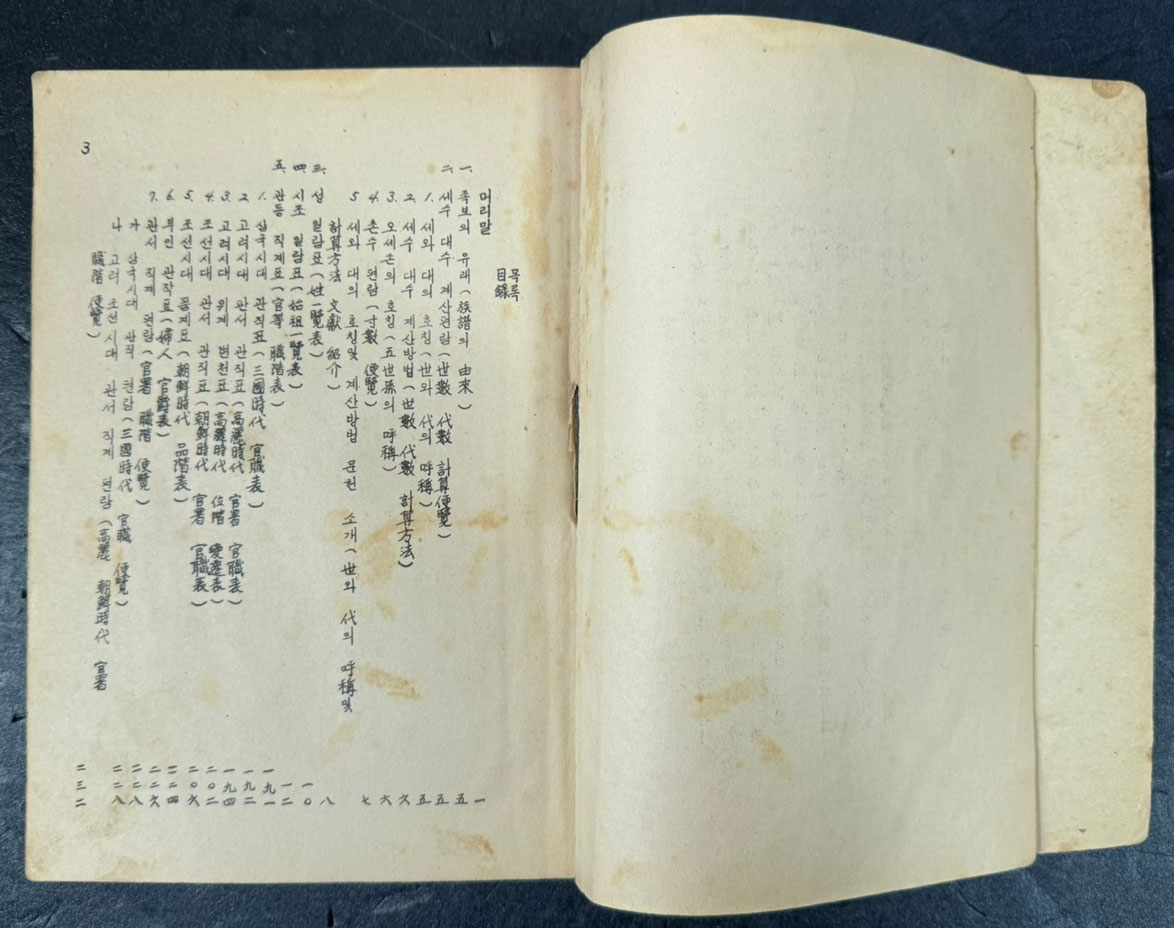 목록
目錄
머리말 一
一. 족보의 유래(族譜의 由來) 五
二. 세수 대수 계산편람(世數 代數 計算便覽) 五
1. 세와 대의 호칭(世와 代의 呼稱) 五
2. 세수 대수 계산방법(世數 代數 計算方法) 六
3. 오세손의 호칭(五世孫의 呼稱) 六
4. 촌수 편람(寸數 便覽) 七
5 세와 대의 호칭및 계산방법 문헌 소개(世와 代의 呼稱및
計算方法 文獻 紹介) 八
三. 성 일람표(姓一覽表) 一〇
四. 시조 일람표(始祖一覽表) 一二
五. 관등 직계표(官等 職階表) 一九一
1. 삼국시대 관직표(三國時代 官職表) 一九二
2. 고려시대 관서 관직표(高麗時代 官署 官職表) 一九四
3. 고려시대 위계 변천표(高麗時代 位階 變遷表) 二〇二
4. 조선시대 관서 관직표(朝鮮時代 官署 官職表) 二〇六
5. 조선시대 품계표(朝鮮時代 品階表) 二二四
6. 부인 관작표(婦人 官爵表) 二二六
7. 관서 직계 편람(官署 職階 便覽) 二二八
가 삼국시대 관직 편람(三國時代 官職 便覽) 二二八
나. 고려 조선시대 관서 직계 편람(高麗 朝鮮時代 官署
職階 便覽) 二三二
3